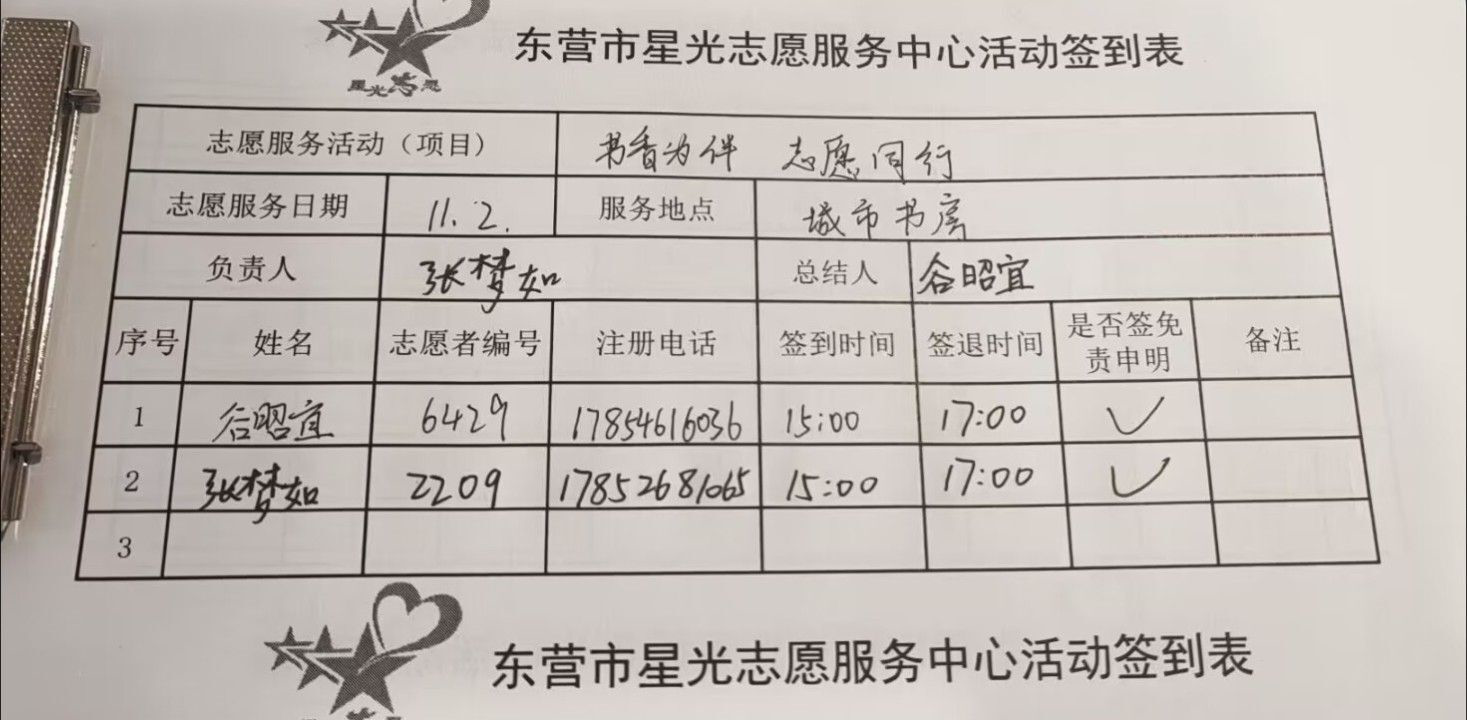 星光志愿
东营市星光志愿服务中心活动签到表
志愿服务活动（项目） 书香为伴 志愿同行
志愿服务日期 11.2. 服务地点 城市书房
负责人 张梦如 总结人 谷昭宜
序号 姓名 志愿者编号 注册电话 签到时间 签退时间 是否签免责申明 备注
1 谷昭宜 6429 17854616036 15:00 17:00 ✓
2 张梦如 2209 17852681065 15:00 17:00 ✓
3
东营市星光志愿服务中心活动签到表